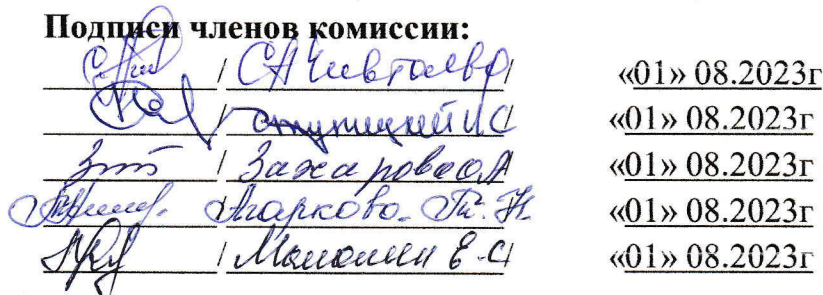 Подписи членов комиссии:
/ СА / «01» 08.2023г
/ Ступицкий И С «01» 08.2023г
/ Захарова ОА «01» 08.2023г
Агаркова Т. Н. «01» 08.2023г
/ Е.С / «01» 08.2023г